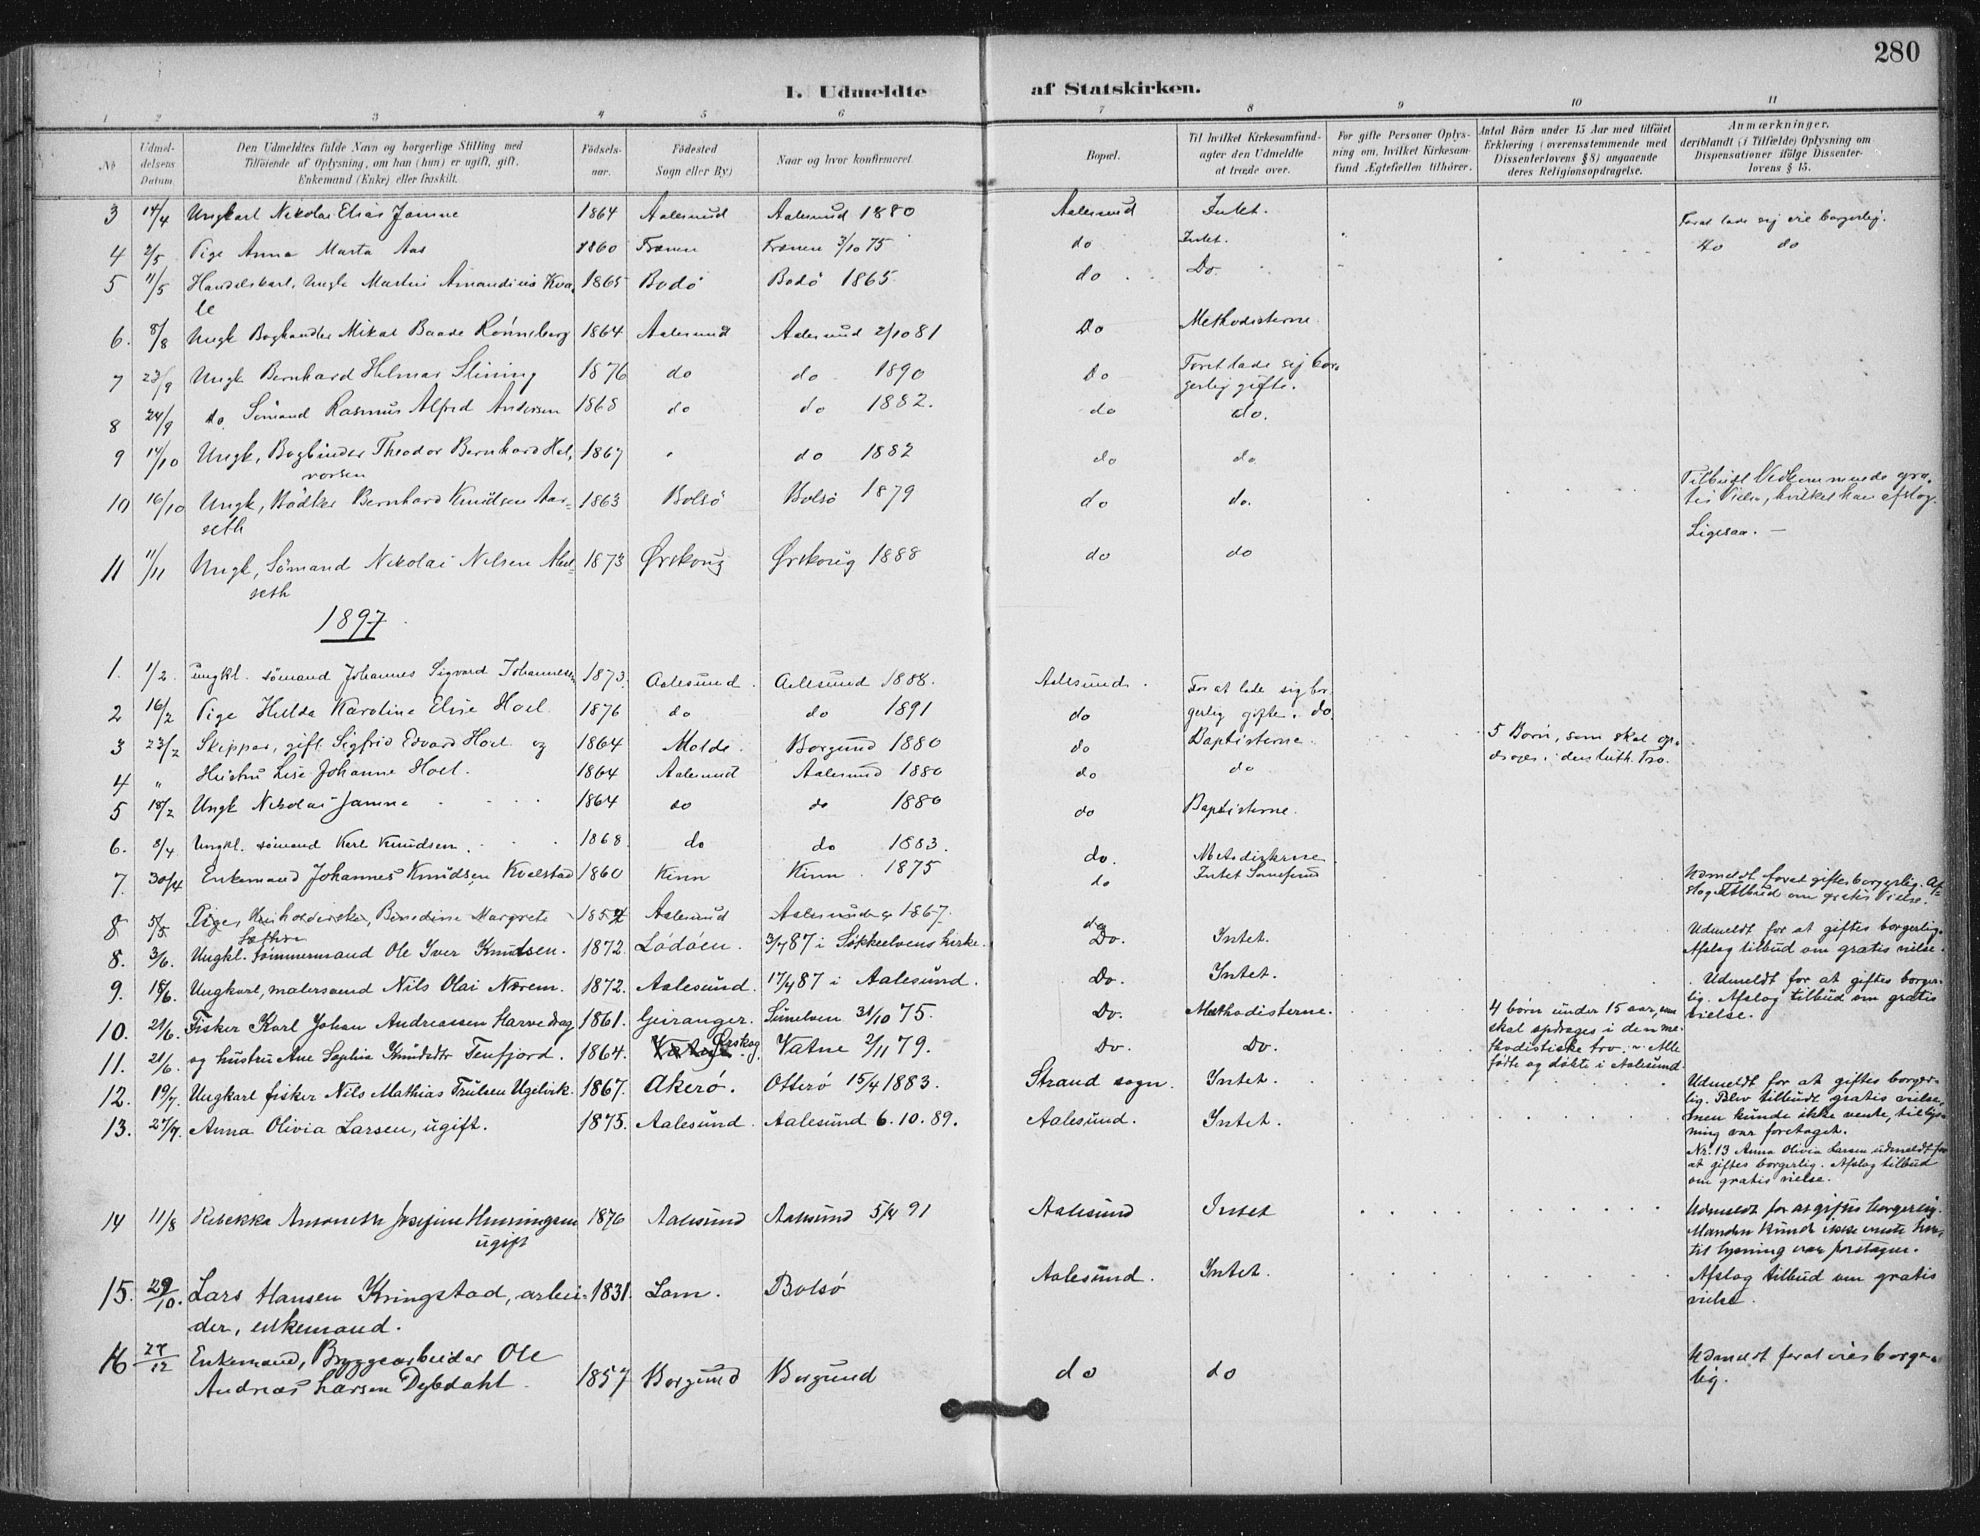 280
I. Udmeldte af Statskirken.
1 2 3 4 5 6 7 8 9 10 11
No
Udmel-
delsens
Datum.
Den Udmeldtes fulde Navn og borgerlige Stilling med
Tilføiende af Oplysning, om han (hun) er ugift, gift.
Enkemand (Enke) eller fraskilt.
Fødsels-
aar.
Fødested
Sogn eller By)
Naar og hvor konfirmeret.
Bopæl.
Til hvilket Kirkesamfund-
agter den Udmeldte
at træde over.
For gifte Personer Oplys-
ning om, hvilket Kirkesam-
fund Ægtefællen tilhører.
Antal Børn under 15 Aar med tilføiet
Erklæring (overensstemmende med
Dissenterlovens § 8) angaaende
deres Religionsopdragelse.
Anmærkninger,
deriblandt (i Tilfælde) Oplysning om
Dispensationer ifølge Dissenter-
lovens § 15.
3 14/4 Ungkarl Nikolai Elias Jamne 1864 Aalesund Aalesund 1880 Aalesund Intet. Forat lade sej vie borgerlig.
4 2/5 Pige Anna Marta Aas 1860 Frænen Frænen 3/10 75 do Intet. do do
5 11/5 Handelskarl, Ungk Martin Amandius Kva- 1865 Bodö Bodö 1865 do Do
le
6. 8/8 Ungk Boghandler Mikal Baade Rönneberg 1864 Aalesund Aalesund 2/10 81 Do Methodisterne
7 23/9 Ungk Bernhard Helmar Slining 1876 do do 1890 Do Forat lade sej bor-
gerlig gifte.
8 24/9 do. Sömand Rasmus Alfred Andersen 1868 do do 1882. do do.
9 14/10 Ungk, Bogbinder Theodor Bernhard Hal- 1867 do 1882 do do
vorsen
10 16/10 Ungk, Bödker Bernhard Knudsen Aar- 1863 Bolsö Bolsö 1879 do do. Tilbudt Vedkommende gra-
tis Vielse, hvilket han afslog.
seth
11 11/11 Ungk, Sömand Nikolai Nilsen 1873 Ørskoug Ørskoug 1888 do do Ligesaa. —
seth
1897
1. 1/2 ungkl. sömand Johannes Sigvard Johannesen 1873. Aalesund. Aalesund 1888. Aalesund. For at lade sig bor-
2 16/2 Pige Hulda Karoline Elise Hoel 1876 do do 1891 do gerlig gifte. do.
3 23/2 Skipper, gift Sigfrid Edvard Hoel og 1864 Molde. Borgund 1880 do Baptisterne. 5 Børn, som skal op-
drages i den luth. Tro.
4 " Hustru Lise Johanne Hoel. 1864 Aalesund Aalesund 1880 do do
5 18/2 Ungk Nikolai Jamne 1864 do do 1880 do Baptisterne.
6. 8/4 Ungkl. sömand Karl Knudsen. 1868. do do 1883. do. Metodisterne
7. 30/4 Enkemand Johannes Knudsen Kvelstad 1860 Kinn Kinn 1875 do Intet Samfund Udmeldt forat giftes borgerlig. Af-
slog Tilbud om gratis Vielse.
8 5/5 Pige, Margrete Aalesund Aalesund 1867. do
Sæther
8. 3/6. Ungkl. Tömmermand Ole Iver Knudsen. 1872. Lödöen. 3/7 87 i Søkkelvens kirke. Do. Intet. Udmeldt for at giftes borgerlig.
Afslog tilbud om gratis vielse.
9. 18/6. Ungkarl, malersvend Nils Olai Nærem. 1872. Aalesund. 17/4 87 i Aalesund. Do. Intet. Udmeldt for at giftes borger-
lig. Afslog tilbud om gratis
vielse.
10. 21/6. Fisker Karl Johan Andreassen Harvedrag 1861. Geiranger. Sunelven 31/10 75. Do. Methodisterne. 4 børn under 15 aar, som
skal opdrages i den me-
thodistiske tro. Alle
fødte og døbte i Aalesund.
11. 21/6. og hustru Ane Sophia Knudsdtr Tenfjord. 1864. Vatne Ørskog. Vatne 2/11 79. Do. Do.
12. 19/7. Ungkarl fisker Nils Mathias Trulsen Ugelvik. 1867. Akerö. Otterö 15/4 1883. Strand sogn. Intet. Udmeldt for at giftes borger-
lig. Blev tilbudt gratis vielse,
men kunde ikke vente, til lys-
ning var foretaget.
13. 27/7. Anna Olivia Larsen, ugift. 1875. Aalesund. Aalesund 6.10.89. Aalesund. Intet.
Nr. 13 Anna Olivia Larsen udmeldt for
at giftes borgerlig. Afslog tilbud
om gratis vielse.
14 11/8 Rebekka Antonette Josefine Henningsen 1876 Aalesund Aalesund 5/4 91 Aalesund Intet Udmeldt for at giftes borgerlig.
ugift
Manden kunde ikke vente her-
til lysning var foretagen.
15. 29/10. Lars Hansen Kringstad, arbei- 1831. Lom. Bolsö Aalesund. Intet. Afslog tilbud om gratis
vielse.
der, enkemand.
16 27/12 Enkemand, Bryggearbeider Ole
Andreas Larsen Dybdahl. 1857 Borgund Borgund do do Udmeldt forat vies borger-
lig.